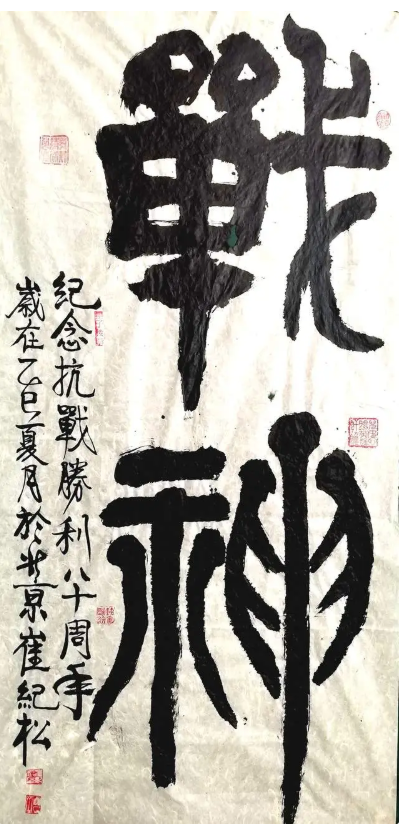 戰神
紀念抗戰勝利八十周年
歲在乙巳夏月於北京崔紀松